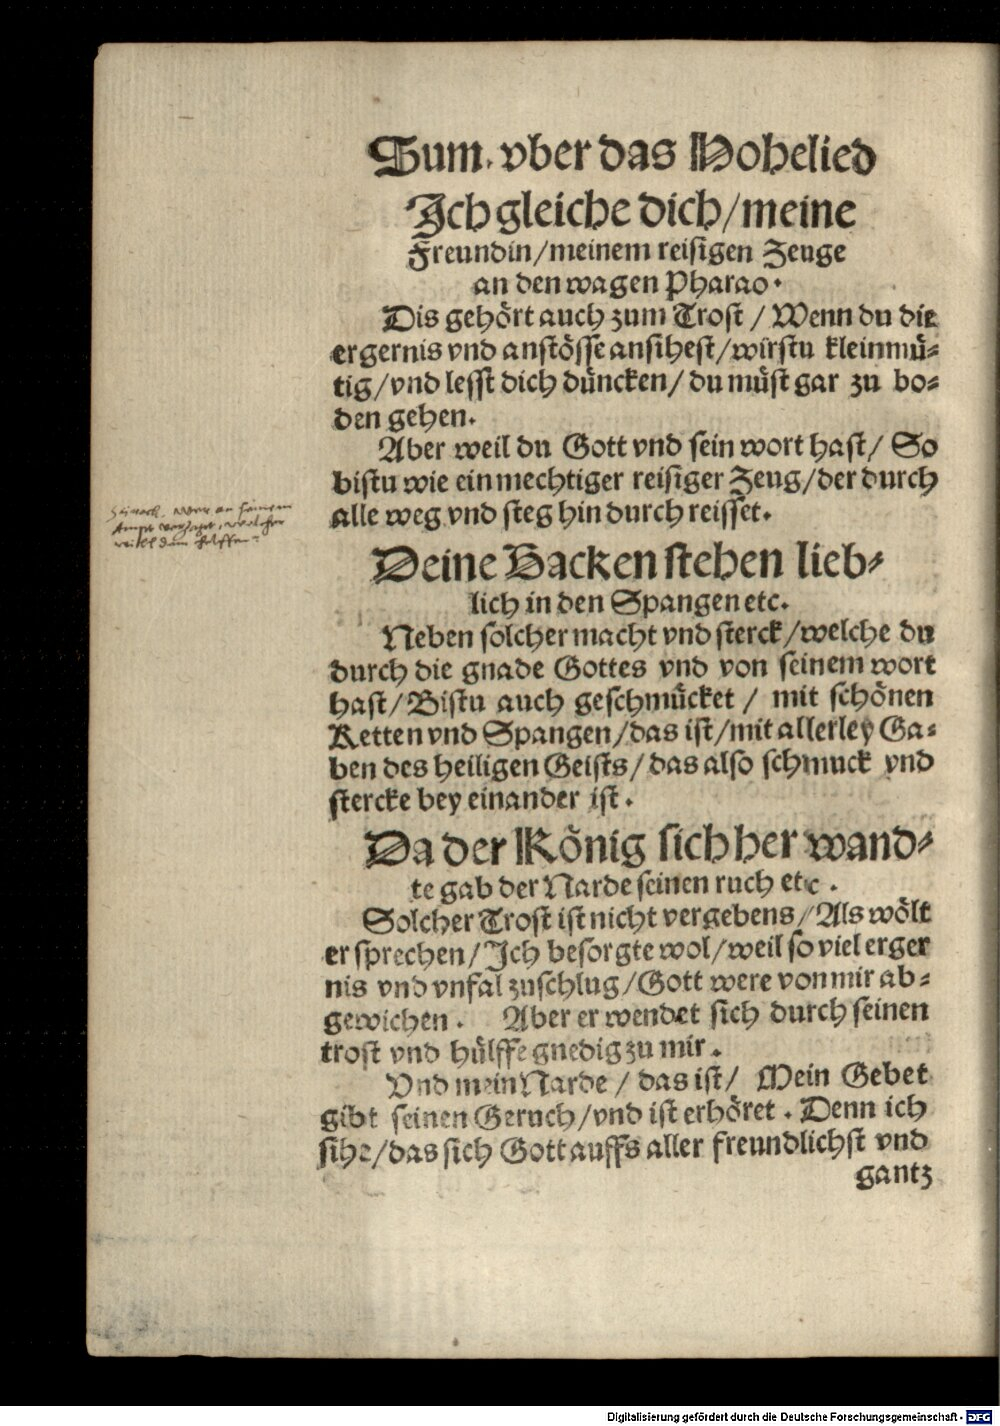 Sum. vber das Hohelied
Ich gleiche dich/meine
Freundin/meinem reisigen Zeuge
an den wagen Pharao.
Dis gehört auch zum Trost / Wenn du die
ergernis vnd anstösse ansihest/wirstu kleinmü-
tig/vnd lesst dich düncken/ du müst gar zu bo-
den gehen.
Aber weil du Gott vnd sein wort hast/ So
bistu wie ein mechtiger reisiger Zeug/der durch
alle weg vnd steg hindurch reisset.
Syrach. Wer an seinem
Ampt verzagt, welcher
will dem helffen.
Deine Backen stehen lieb-
lich in den Spangen etc.
Neben solcher macht vnd sterck/welche du
durch die gnade Gottes vnd von seinem wort
hast/Bistu auch geschmücket / mit schönen
Ketten vnd Spangen/das ist/mit allerley Ga-
ben des heiligen Geists/das also schmuck vnd
stercke bey einander ist.
Da der König sich her wand-
te gab der Narde seinen ruch etc.
Solcher Trost ist nicht vergebens/Als wölt
er sprechen/Ich besorgte wol/weil so viel erger
nis vnd vnfal zuschlug/Gott were von mir ab-
gewichen. Aber er wendet sich durch seinen
trost vnd hülffe gnedig zu mir.
Vnd mein Narde / das ist/ Mein Gebet
gibt seinen Geruch/vnd ist erhöret. Denn ich
sihe/das sich Gott auffs aller freundlichst vnd
gantz
Digitalisierung gefördert durch die Deutsche Forschungsgemeinschaft - DFG